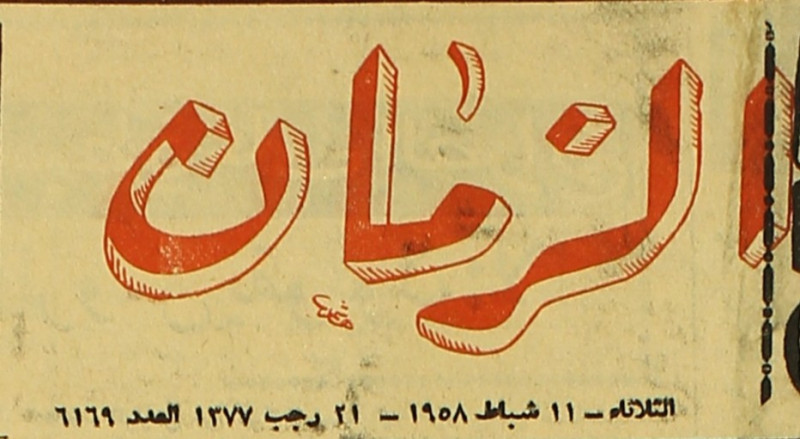 الزمان
هاشم
الثلاثاء – ١١ شباط ١٩٥٨ – ٢١ رجب ١٣٧٧ العدد ٦١٦٩